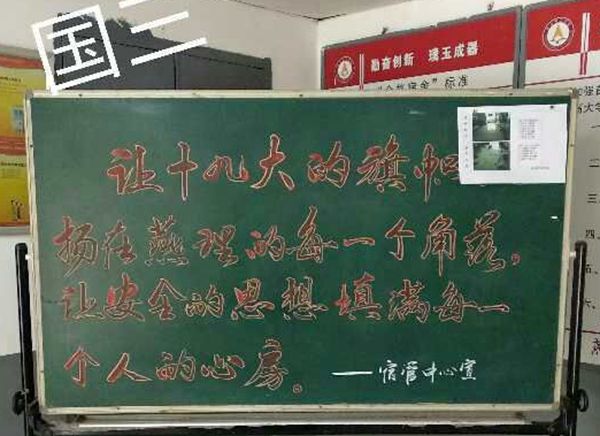 国三
勤奋创新 璞玉成器
标准
让十九大的旗帜
扬在燕理的每一个角落。
让安全的思想填满每一
个人的心房。
——宿管中心宣